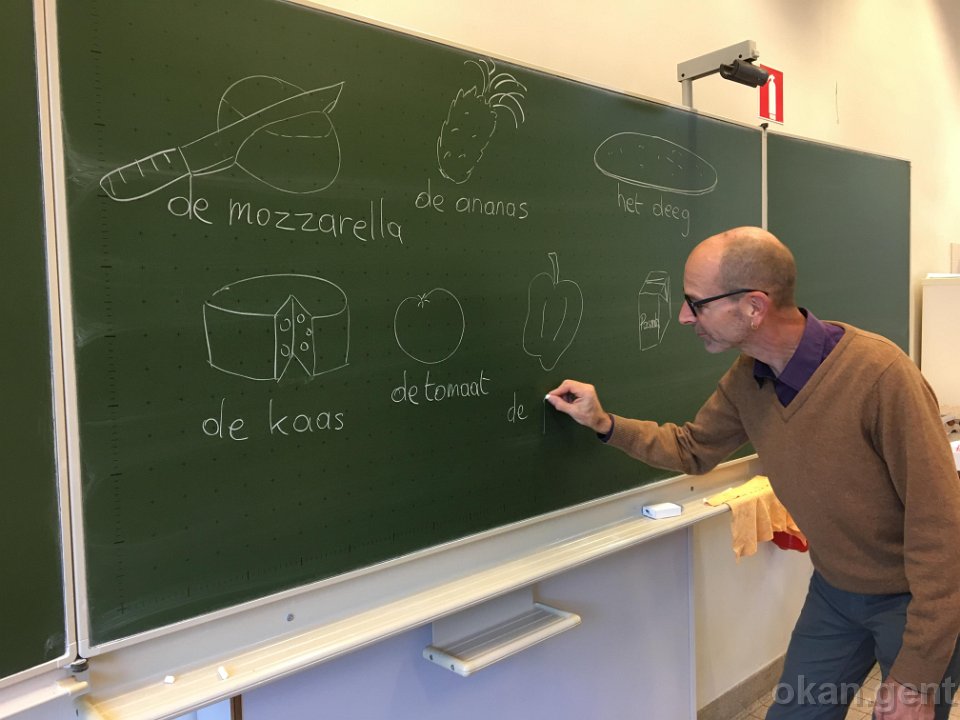 de mozzarella
de ananas
het deeg
de kaas
de tomaat
de
okan.gent